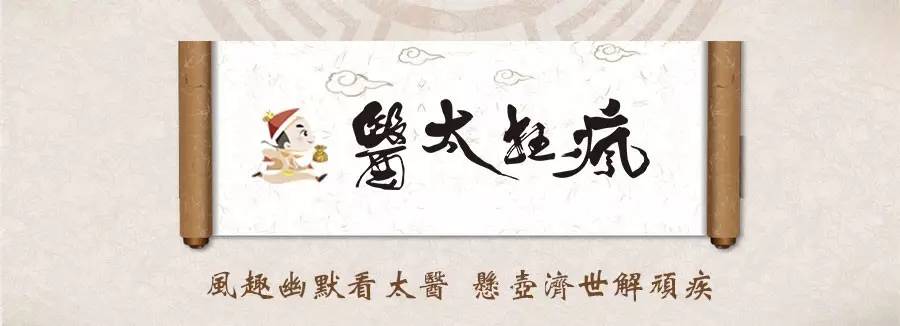 瘋狂太醫
風趣幽默看太醫 懸壺濟世解頑疾